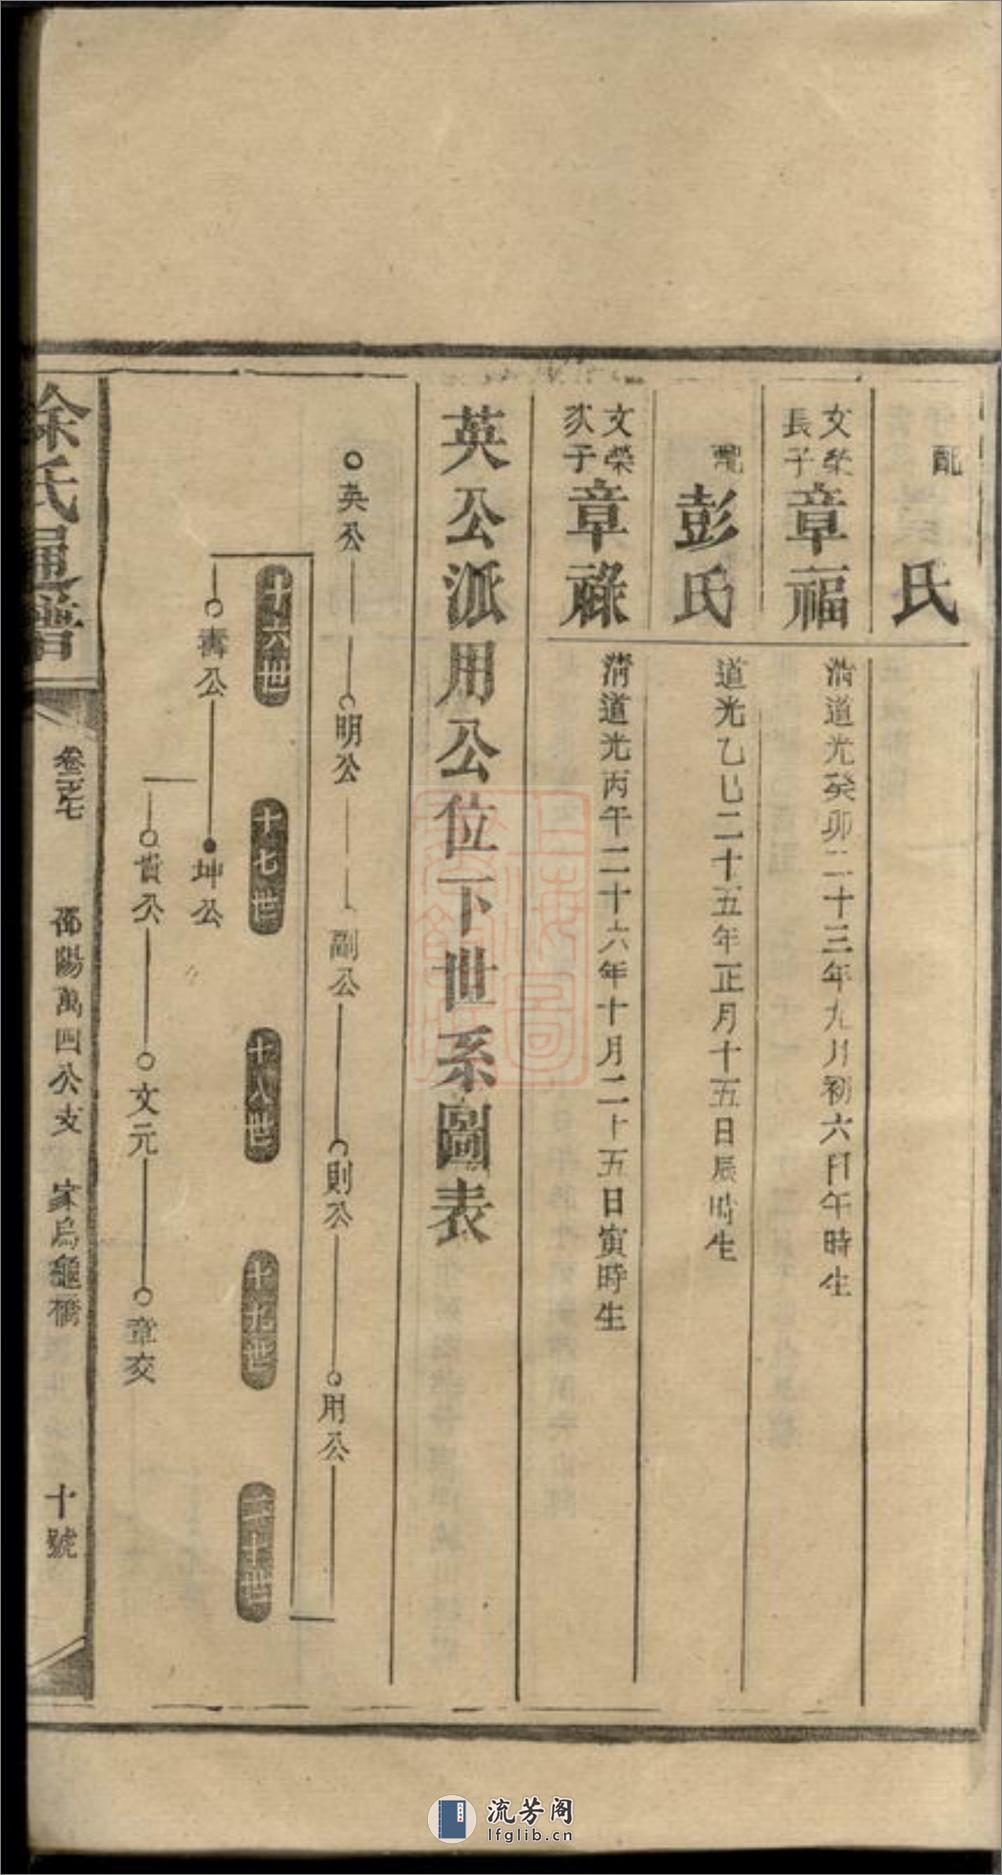 配
氏
文榮
長子
章福
清道光癸卯二十三年九月初六日午時生
配
彭氏
道光乙巳二十五年正月十五日辰時生
文榮
次子
章祿
清道光丙午二十六年十月二十五日寅時生
英公派用公位下世系圖表
英公
明公
副公
則公
用公
十六世
十七世
十八世
十九世
二十世
壽公
坤公
貴公
文元
章交
氏通譜
卷之七
邵陽萬四公支
烏龜橋
十號
流芳阁
lfglib.cn